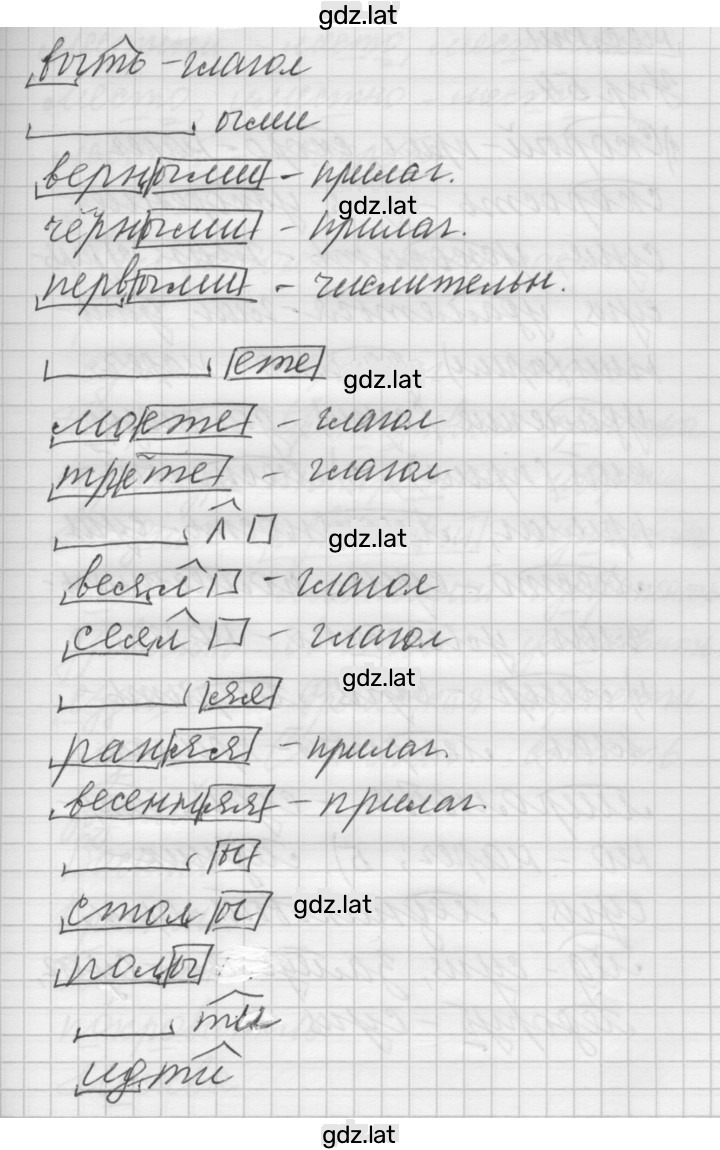 gdz.lat
выть - глагол
ыми
верными - прилаг.
gdz.lat
чёрными - прилаг.
первыми - числительн.
ете
gdz.lat
моете - глагол
трёте - глагол
л
gdz.lat
веял - глагол
сеял - глагол
gdz.lat
яя
ранняя - прилаг.
весенняя - прилаг.
ы
столы
gdz.lat
полы
ти
идти
gdz.lat